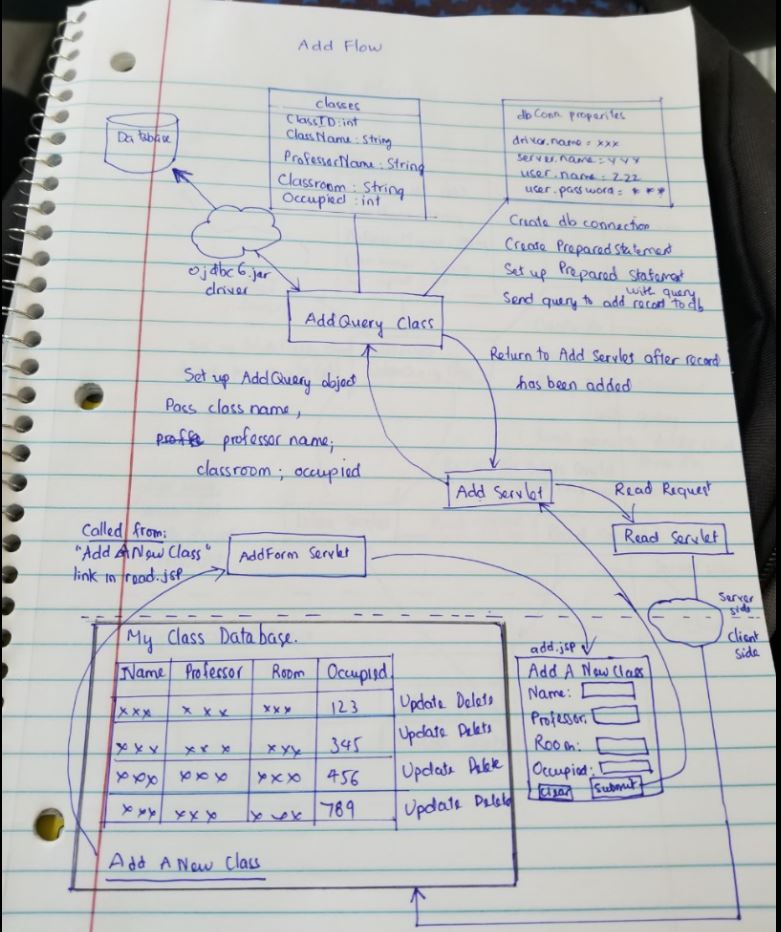 Add Flow
Database
classes
ClassID:int
ClassName: String
ProfessorName: String
Classroom: String
Occupied: int
dbConn properties
driver.name = xxx
server.name = yyy
user.name = zzz
user.password = ***
ojdbc6.jar
driver
Create db connection
Create PreparedStatement
Set up Prepared Statement
with query
Send query to add record to db
AddQuery Class
Return to Add Servlet after record
has been added
Set up AddQuery object
Pass class name,
professor name;
classroom; occupied
Add Servlet
Read Request
Read Servlet
Called from:
"Add A New Class"
link in read.jsp
AddForm Servlet
Server
side
Client
side
My Class Database.
Name Professor Room Occupied
xxx xxx xxx 123 Update Delete
xxx xxx xxx 345 Update Delete
xxx xxx xxx 456 Update Delete
xxx xxx xxx 789 Update Delete
Add A New Class
add.jsp
Add A New Class
Name:
Professor:
Room:
Occupied:
Clear Submit